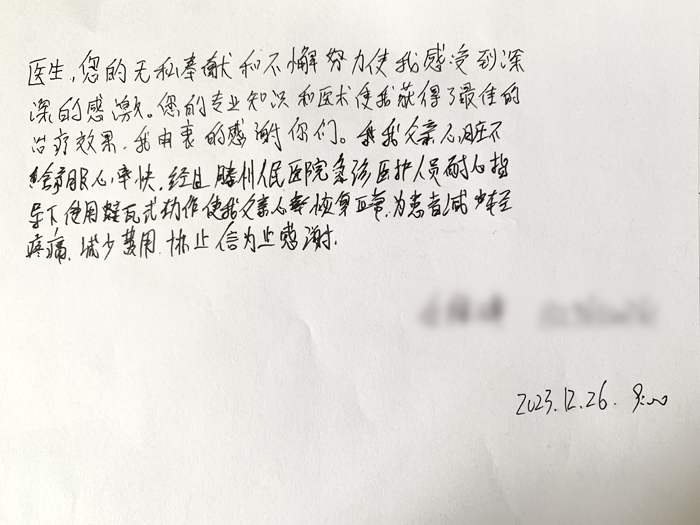 医生,您的无私奉献和不懈努力使我感受到深
深的感激。您的专业知识和医术使我获得了最佳的
治疗效果,我由衷的感谢你们。我父亲心脏不
舒服心率快,经过滕州人民医院急诊医护人员耐心指
导下使用瓦式动作使我父亲心率恢复正常,为患者减少轻
疼痛,减少费用.协止信为止感谢.
2023.12.26. 9:00